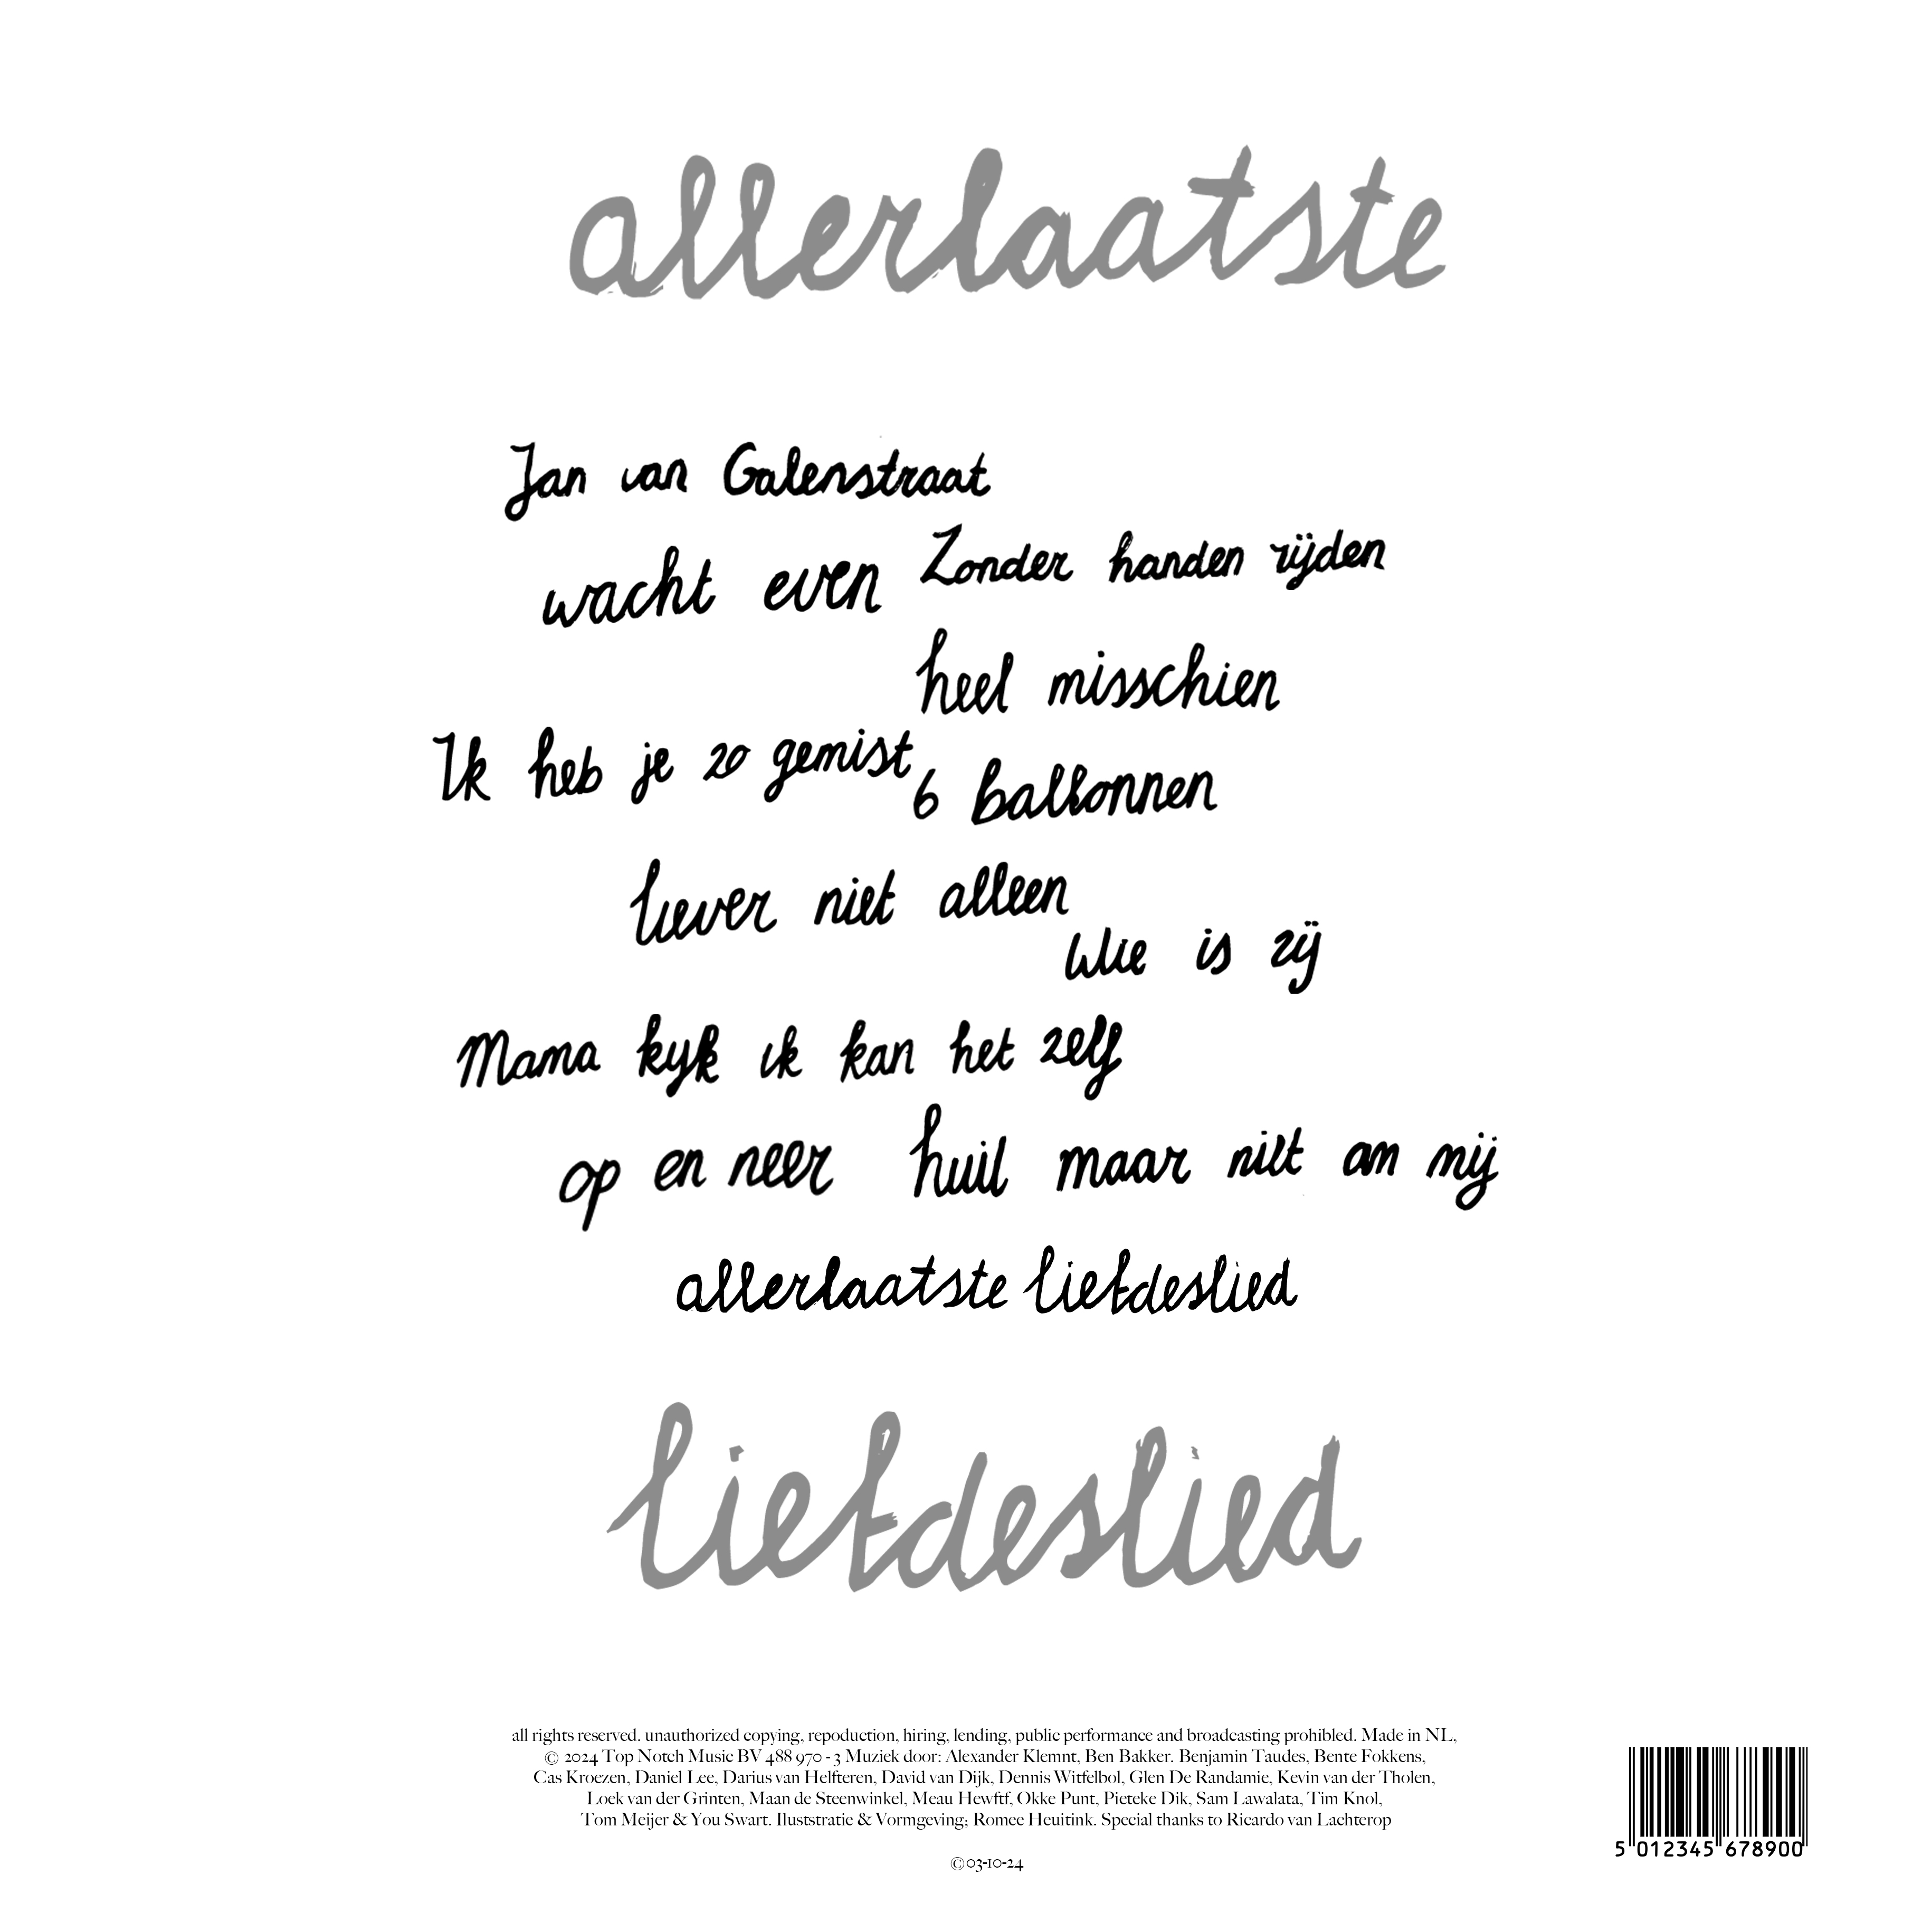 allerlaatste
Jan van Galenstraat
wacht even
Zonder handen rijden
heel misschien
Ik heb je zo gemist
6 ballonnen
liever niet alleen
Wie is zij
Mama kijk ik kan het zelf
op en neer
huil maar niet om mij
allerlaatste liefdeslied
liefdeslied
all rights reserved. unauthorized copying, repoduction, hiring, lending, public performance and broadcasting prohibled. Made in NL,
© 2024 Top Notch Music BV 488 970 - 3 Muziek door: Alexander Klemnt, Ben Bakker. Benjamin Taudes, Bente Fokkens,
Cas Kroezen, Daniel Lee, Darius van Helfteren, David van Dijk, Dennis Witfelbol, Glen De Randamie, Kevin van der Tholen,
Loek van der Grinten, Maan de Steenwinkel, Meau Hewftf, Okke Punt, Pieteke Dik, Sam Lawalata, Tim Knol,
Tom Meijer & You Swart. Iluststratie & Vormgeving; Romee Heuitink. Special thanks to Ricardo van Lachterop
©03-10-24
5 012345 678900